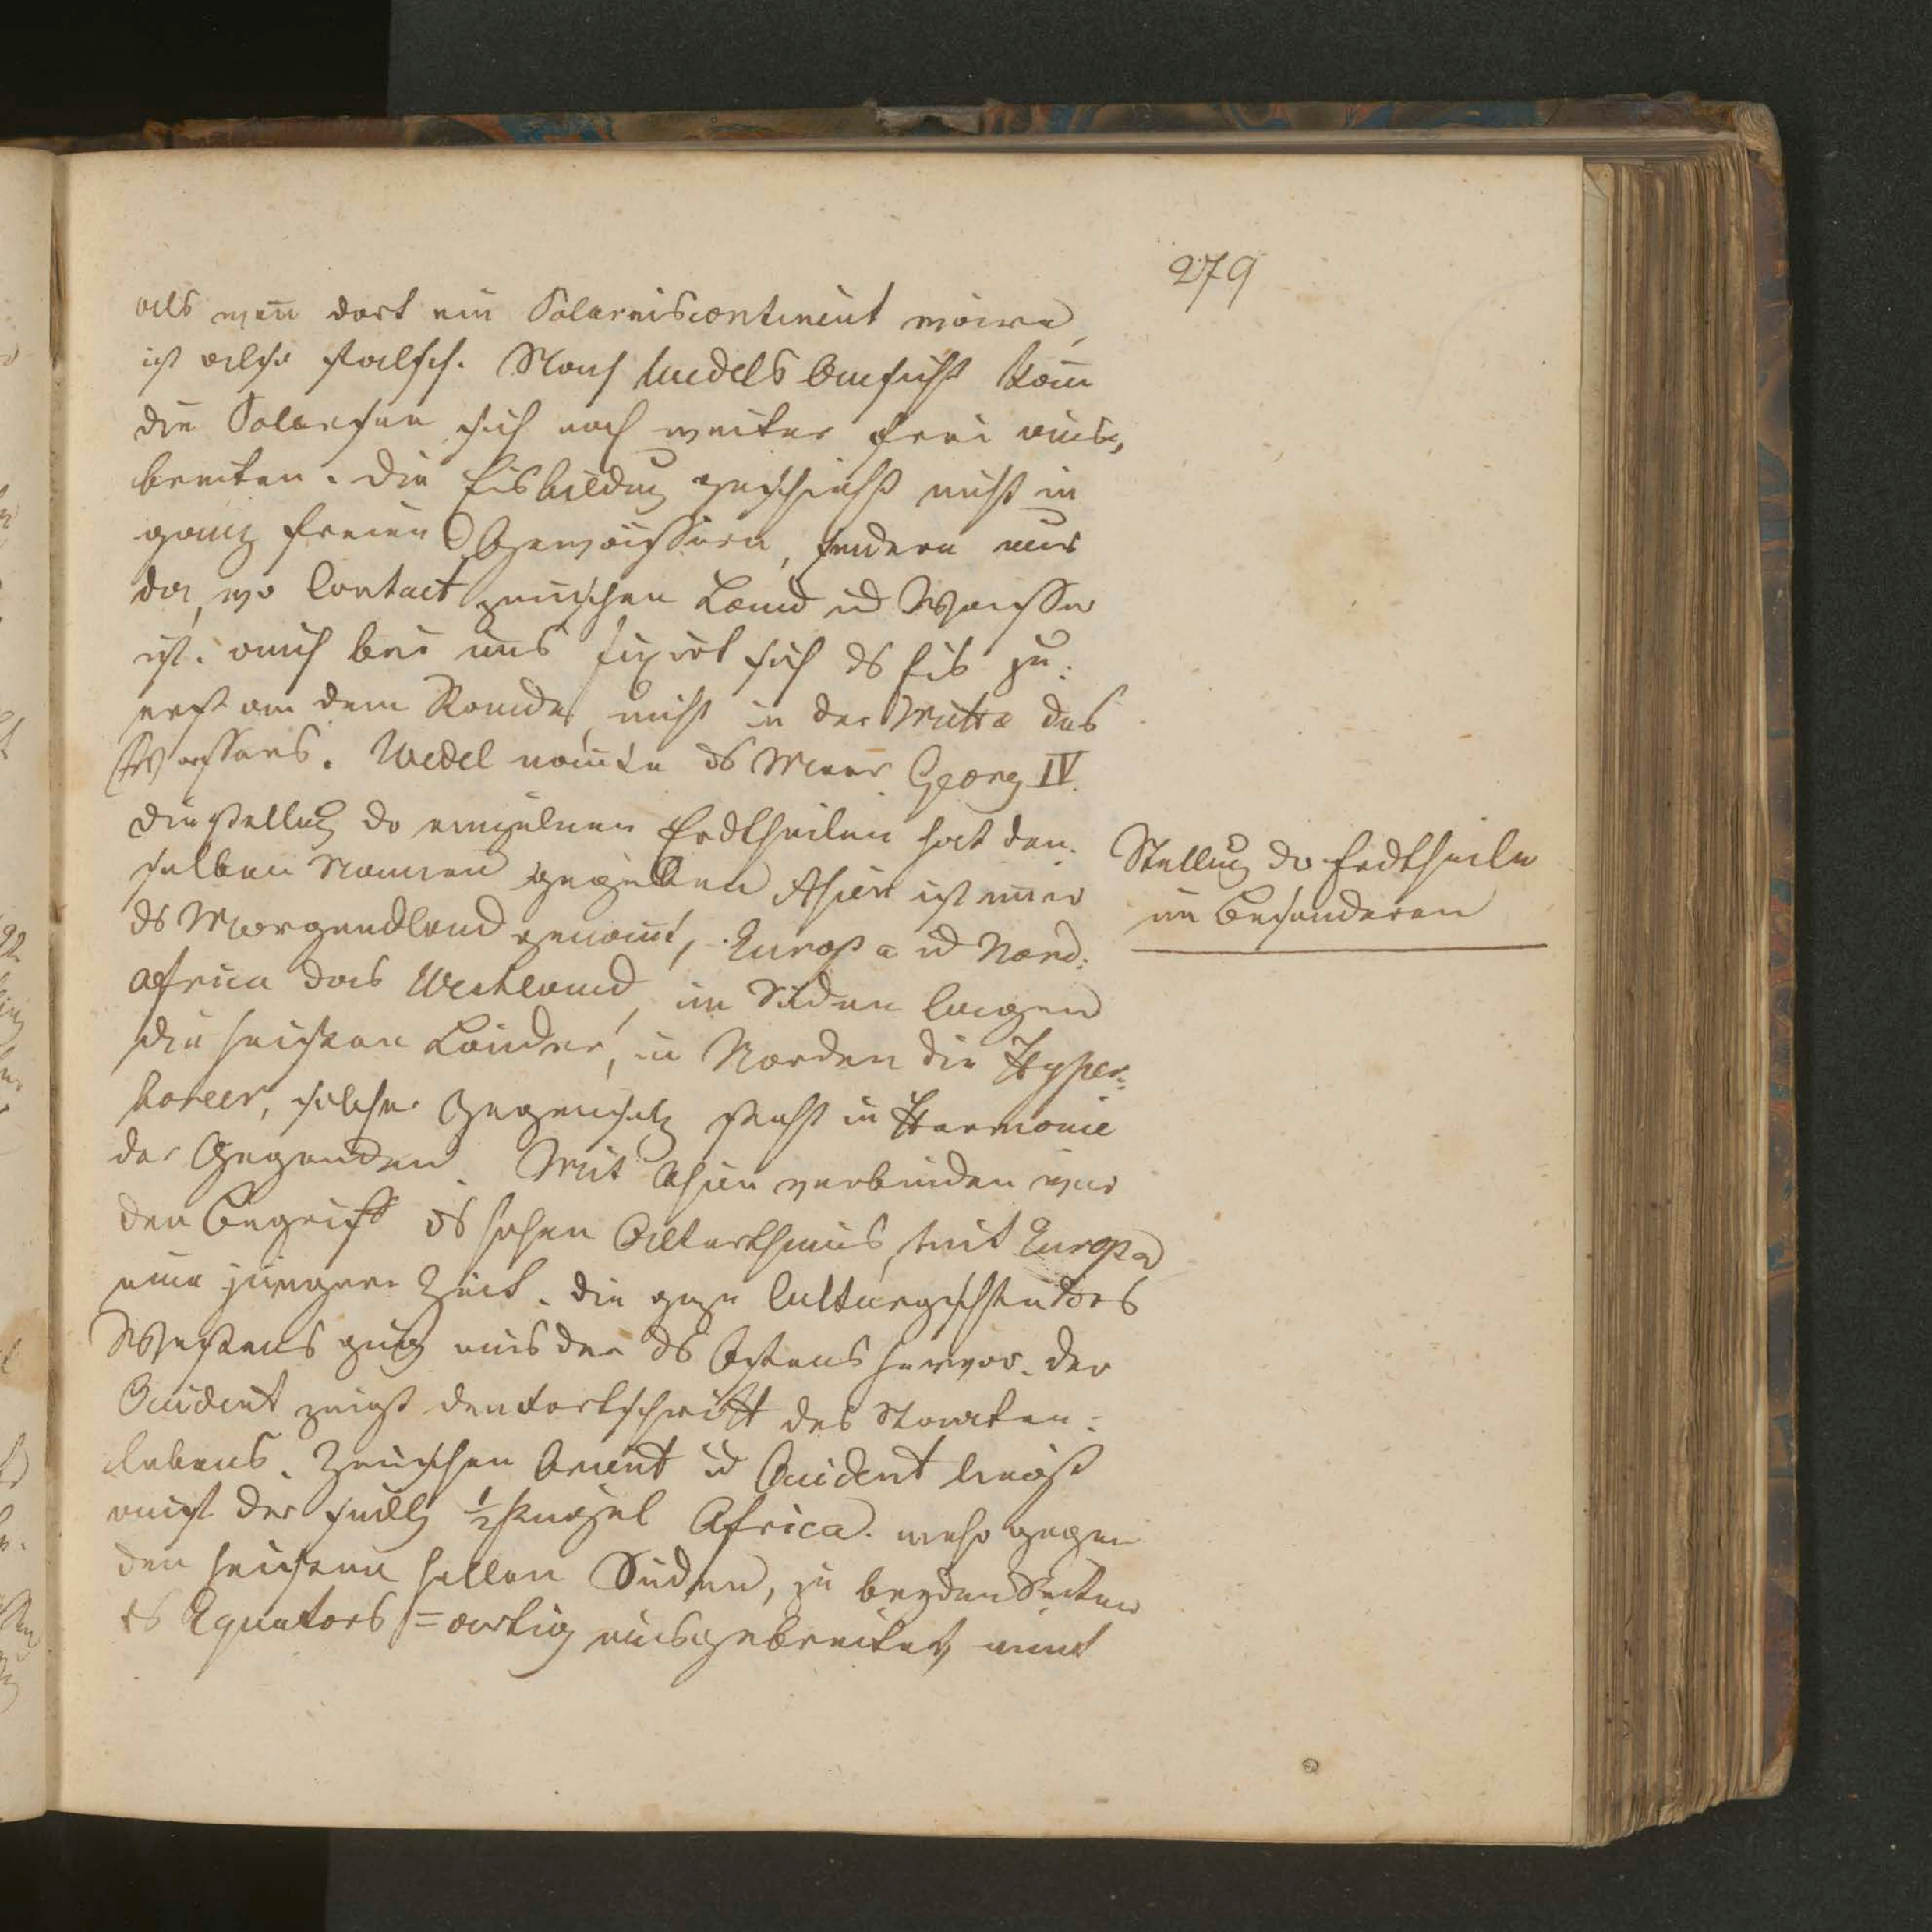 279
als wen̄ dort ein Polareiscontinent wäre,
ist also falsch. Nach Wedels Ansicht kan̄
die Polarsee sich noch weiter frei aus,
breiten. Die Eisbildung geschieht nicht in
ganz freien Gewässern, sondern nur
da, wo Contact zwischen Land ud Wasser
ist. auch bei uns fixirt sich ds Eis zu:
erst an dem Rande, nicht in der Mitte des
Wassers. Wedel nan̄te ds Meer Georg IV.
Die Stellung dr einzelnen Erdtheilen hat den:
selben Namen gegeben Asien ist im̄er
ds Morgendland genan̄t, Europa ud Nord:
africa das Westland, im Süden lagen
die heißen Länder, in Norden die Hyper:
boreer, solcher Gegensatz steht in Harmonie
der Gegenden. Mit Asien verbinden wir
den Begriff ds hohen Alterthums, mit Europa
eine jüngere Zeit. die gze Culturgeschte des
Westens ging aus der ds Ostens hervor. der
Occident zeigt den Fortschritt des Staaten:
lebens. Zwischen Orient ud Occident liegt
auch der 1/2 Africa. mehr gegen
den heißen hellen Süden, zu beyden Seiten
ds Equators =artig ausgebreitet, nim̄t
Stellung dr Erdtheile
im Besonderen